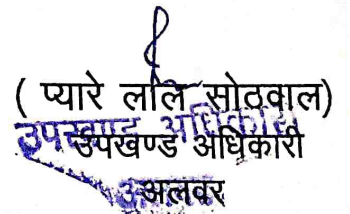 ( प्यारे लाल सोठवाल)
उपखण्ड अधिकारी
उपखण्ड अधिकारी
अलवर